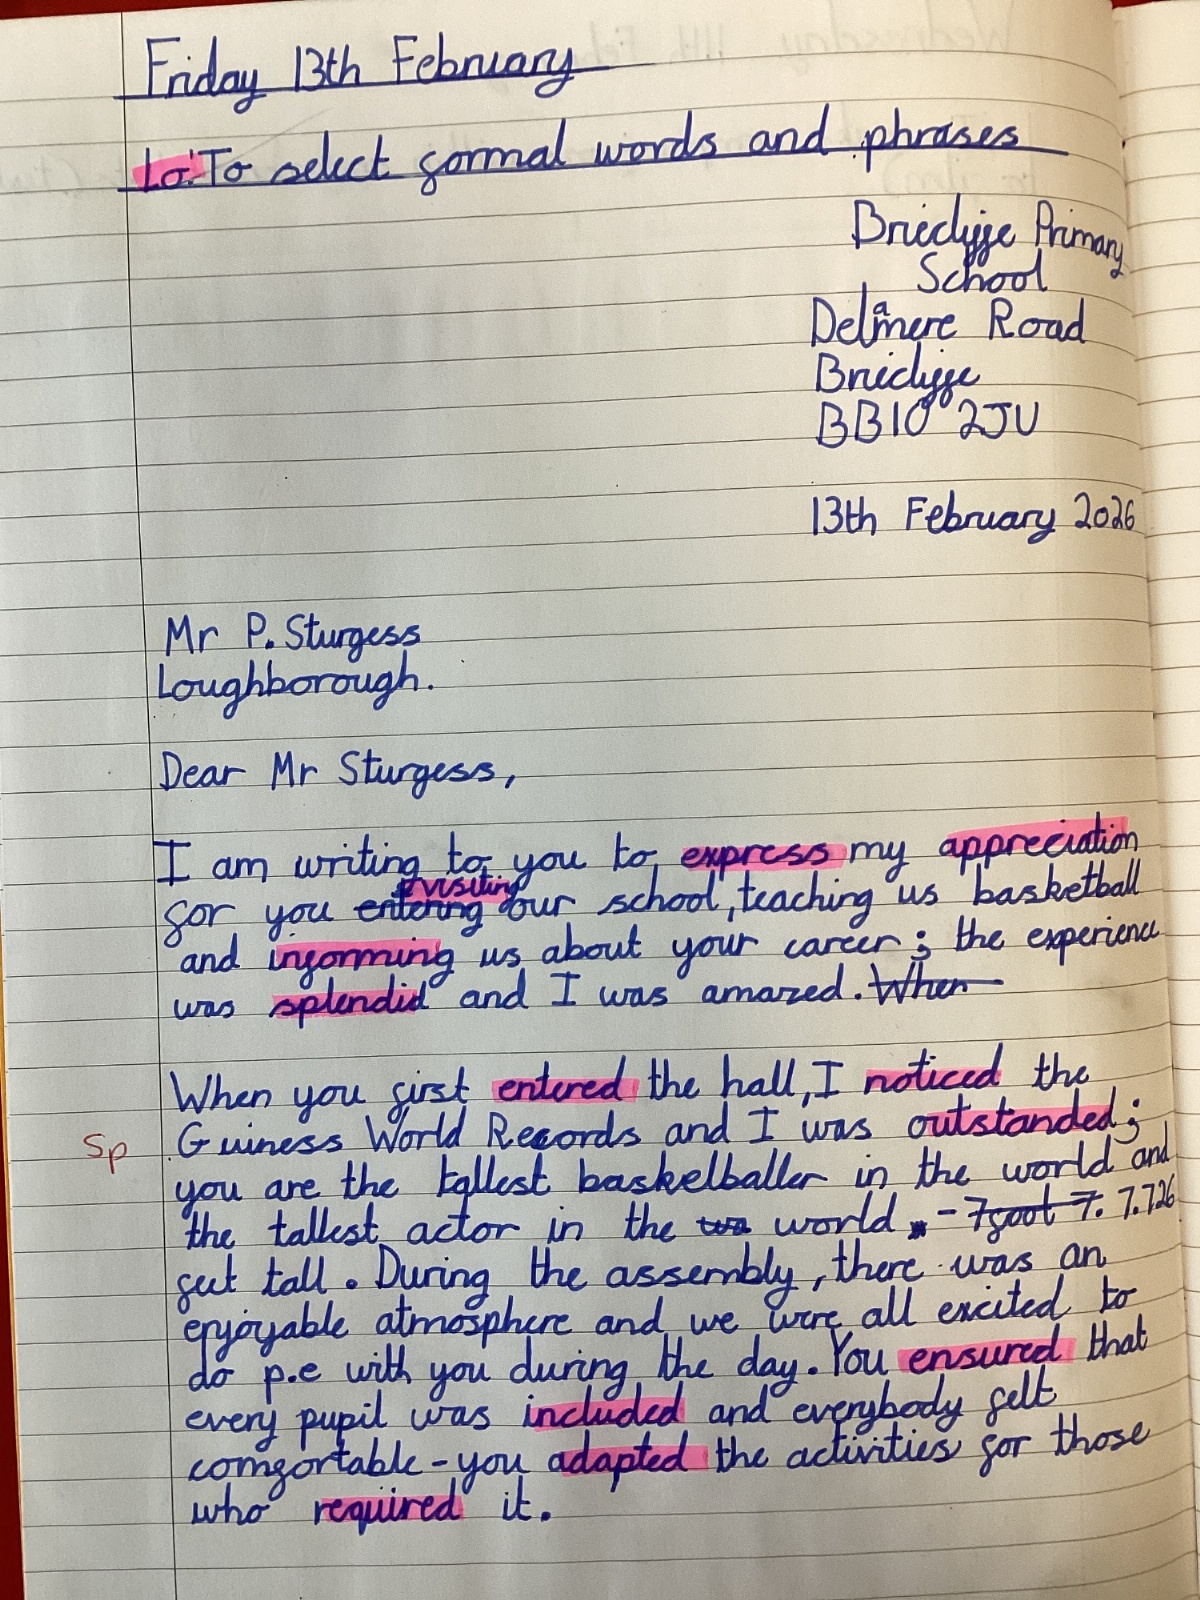 Friday 13th February
Lo: To select formal words and phrases
Briercliffe Primary
School
Delamere Road
Briercliffe
BB10 2JU
13th February 2026
Mr P. Sturgess
Loughborough.
Dear Mr Sturgess,
I am writing to you to express my appreciation
for you entering visiting our school, teaching us basketball
and informing us about your career; the experience
was splendid and I was amazed. When
When you first entered the hall, I noticed the
Sp Guiness World Records and I was outstanded;
you are the tallest basketballer in the world and
the tallest actor in the world - 7foot 7. 7.726
feet tall. During the assembly, there was an
enjoyable atmosphere and we were all excited to
do p.e with you during the day. You ensured that
every pupil was included and everybody felt
comfortable - you adapted the activities for those
who required it.